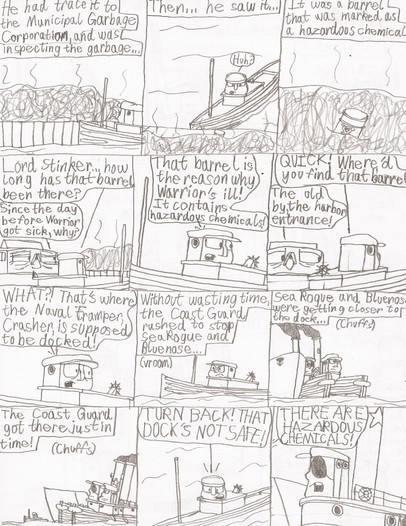 He had trace it to
the Municipal Garbage
Corporation, and was
inspecting the garbage...
Then... he saw it...
Huh?
It was a barrel
that was marked as
a hazardous chemical
Lord Stinker... how
long has that barrel
been there?
Since the day
before Warrior
got sick, why?
That barrel is
the reason why
Warrior's ill!
It contains
hazardous chemicals!
QUICK! Where'd
you find that barrel
The old
by the harbor
entrance!
WHAT?! That's where
the Naval Tramper,
Crasher, is supposed
to be docked!
Without wasting time,
the Coast Guard
rushed to stop
Sea Rogue and
Bluenose...
(Vroom)
Sea Rogue and Bluenose
were getting closer to
the dock...
(Chuffs)
The Coast Guard
got there just in
time!
(Chuffs)
TURN BACK! THAT
DOCK'S NOT SAFE!
THERE ARE
HAZARDOUS
CHEMICALS!